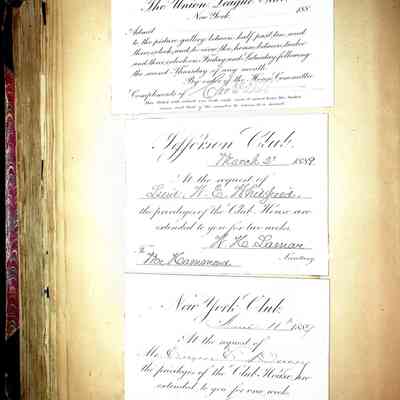 The Union League Club,
New York. 188
Admit
to the picture gallery between half past ten and
three o'clock, and to view the house between twelve
and three o'clock on Friday and Saturday following
the second Thursday of any month.
By order of the House Committee
Compliments of
Jefferson Club,
March 2d 1889
At the request of
Lieut. W. E.
the privileges of the Club House are
extended to you for two weeks
W H Lamar
To Secretary
Mr Hammond
New York Club
June 11th 1887
At the request of
Mr.
the privileges of the Club House are
extended to you for one week